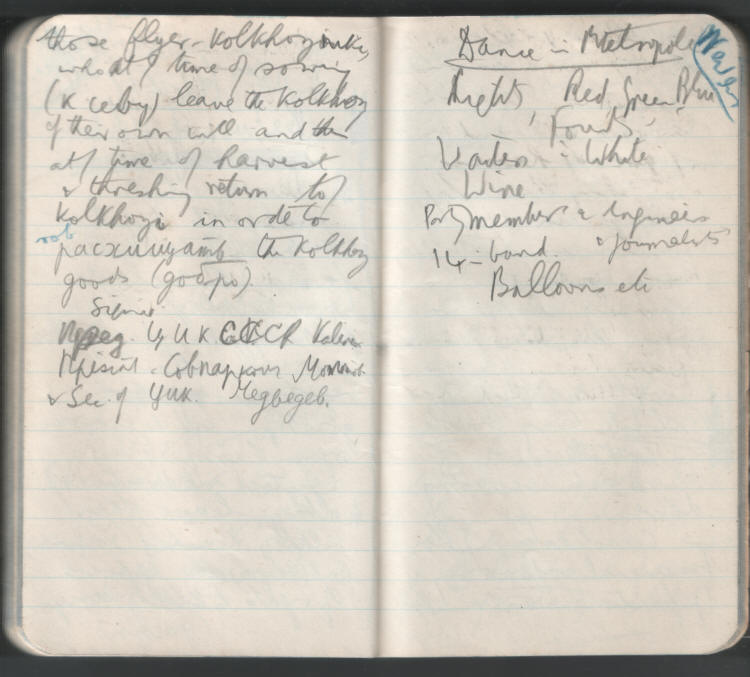 those flyer-kolkhozniks,
who at / time of sowing
(к севу) leave the kolkhoz
of their own will and then
at / time of harvest
& threshing return to /
kolkhozi in order to
rob
расхищать the kolkhoz
goods (добро).
Signed
Пред. ЦИК СССР Kalinin
Совнарком
& Sec. of ЦИК. Медведев.
Dance in Metropole
Lights, Red, Green, Blue
Fountain
Waiters : White
Wine
Party members & Engineers
14-band. & journalists
Balloons etc